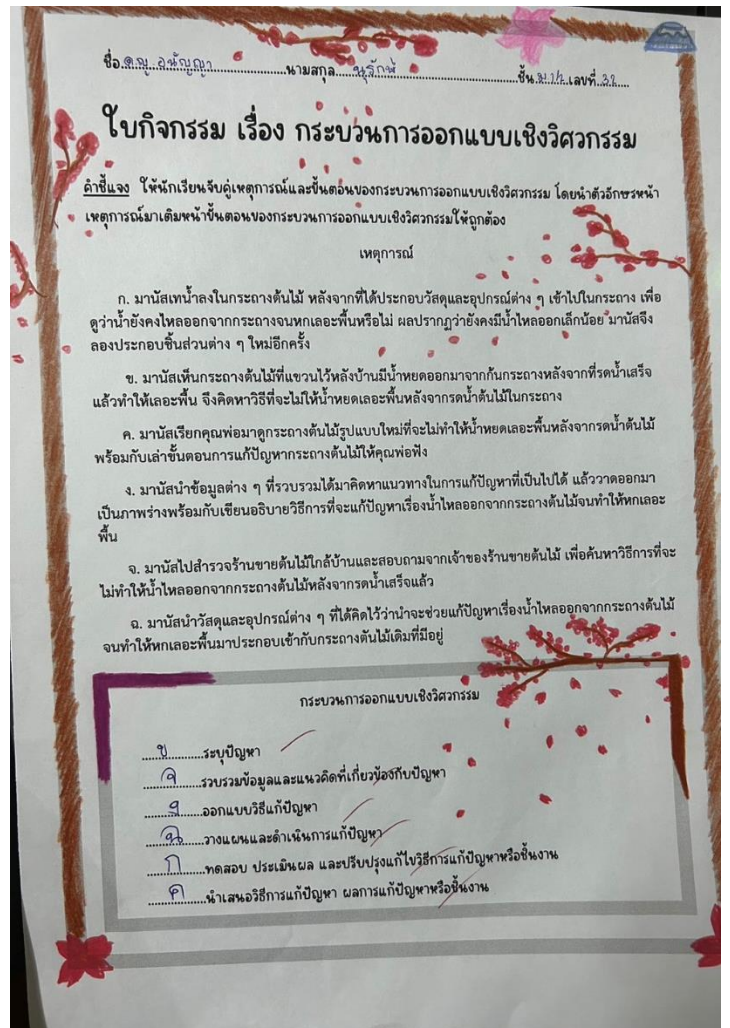 ชื่อ ด.ญ. อนัญญา นามสกุล นุรักษ์ ชั้น ม.1/2 เลขที่ 32
ใบกิจกรรม เรื่อง กระบวนการออกแบบเชิงวิศวกรรม
คำชี้แจง ให้นักเรียนจับคู่เหตุการณ์และขั้นตอนของกระบวนการออกแบบเชิงวิศวกรรม โดยนำตัวอักษรหน้า
เหตุการณ์มาเติมหน้าขั้นตอนของกระบวนการออกแบบเชิงวิศวกรรมให้ถูกต้อง
เหตุการณ์
ก. มานัสเทน้ำลงในกระถางต้นไม้ หลังจากที่ได้ประกอบวัสดุและอุปกรณ์ต่าง ๆ เข้าไปในกระถาง เพื่อ
ดูว่าน้ำยังคงไหลออกจากกระถางจนหกเลอะพื้นหรือไม่ ผลปรากฏว่ายังคงมีน้ำไหลออกเล็กน้อย มานัสจึง
ลองประกอบชิ้นส่วนต่าง ๆ ใหม่อีกครั้ง
ข. มานัสเห็นกระถางต้นไม้ที่แขวนไว้หลังบ้านมีน้ำหยดออกมาจากก้นกระถางหลังจากที่รดน้ำเสร็จ
แล้วทำให้เลอะพื้น จึงคิดหาวิธีที่จะไม่ให้น้ำหยดเลอะพื้นหลังจากรดน้ำต้นไม้ในกระถาง
ค. มานัสเรียกคุณพ่อมาดูกระถางต้นไม้รูปแบบใหม่ที่จะไม่ทำให้น้ำหยดเลอะพื้นหลังจากรดน้ำต้นไม้
พร้อมกับเล่าขั้นตอนการแก้ปัญหากระถางต้นไม้ให้คุณพ่อฟัง
ง. มานัสนำข้อมูลต่าง ๆ ที่รวบรวมได้มาคิดหาแนวทางในการแก้ปัญหาที่เป็นไปได้ แล้ววาดออกมา
เป็นภาพร่างพร้อมกับเขียนอธิบายวิธีการที่จะแก้ปัญหาเรื่องน้ำไหลออกจากกระถางต้นไม้จนทำให้หกเลอะ
พื้น
จ. มานัสไปสำรวจร้านขายต้นไม้ใกล้บ้านและสอบถามจากเจ้าของร้านขายต้นไม้ เพื่อค้นหาวิธีการที่จะ
ไม่ทำให้น้ำไหลออกจากกระถางต้นไม้หลังจากรดน้ำเสร็จแล้ว
ฉ. มานัสนำวัสดุและอุปกรณ์ต่าง ๆ ที่ได้คิดไว้ว่าน่าจะช่วยแก้ปัญหาเรื่องน้ำไหลออกจากกระถางต้นไม้
จนทำให้หกเลอะพื้นมาประกอบเข้ากับกระถางต้นไม้เดิมที่มีอยู่
กระบวนการออกแบบเชิงวิศวกรรม
ข ระบุปัญหา
จ รวบรวมข้อมูลและแนวคิดที่เกี่ยวข้องกับปัญหา
ง ออกแบบวิธีแก้ปัญหา
ฉ วางแผนและดำเนินการแก้ปัญหา
ก ทดสอบ ประเมินผล และปรับปรุงแก้ไขวิธีการแก้ปัญหาหรือชิ้นงาน
ค นำเสนอวิธีการแก้ปัญหา ผลการแก้ปัญหาหรือชิ้นงาน